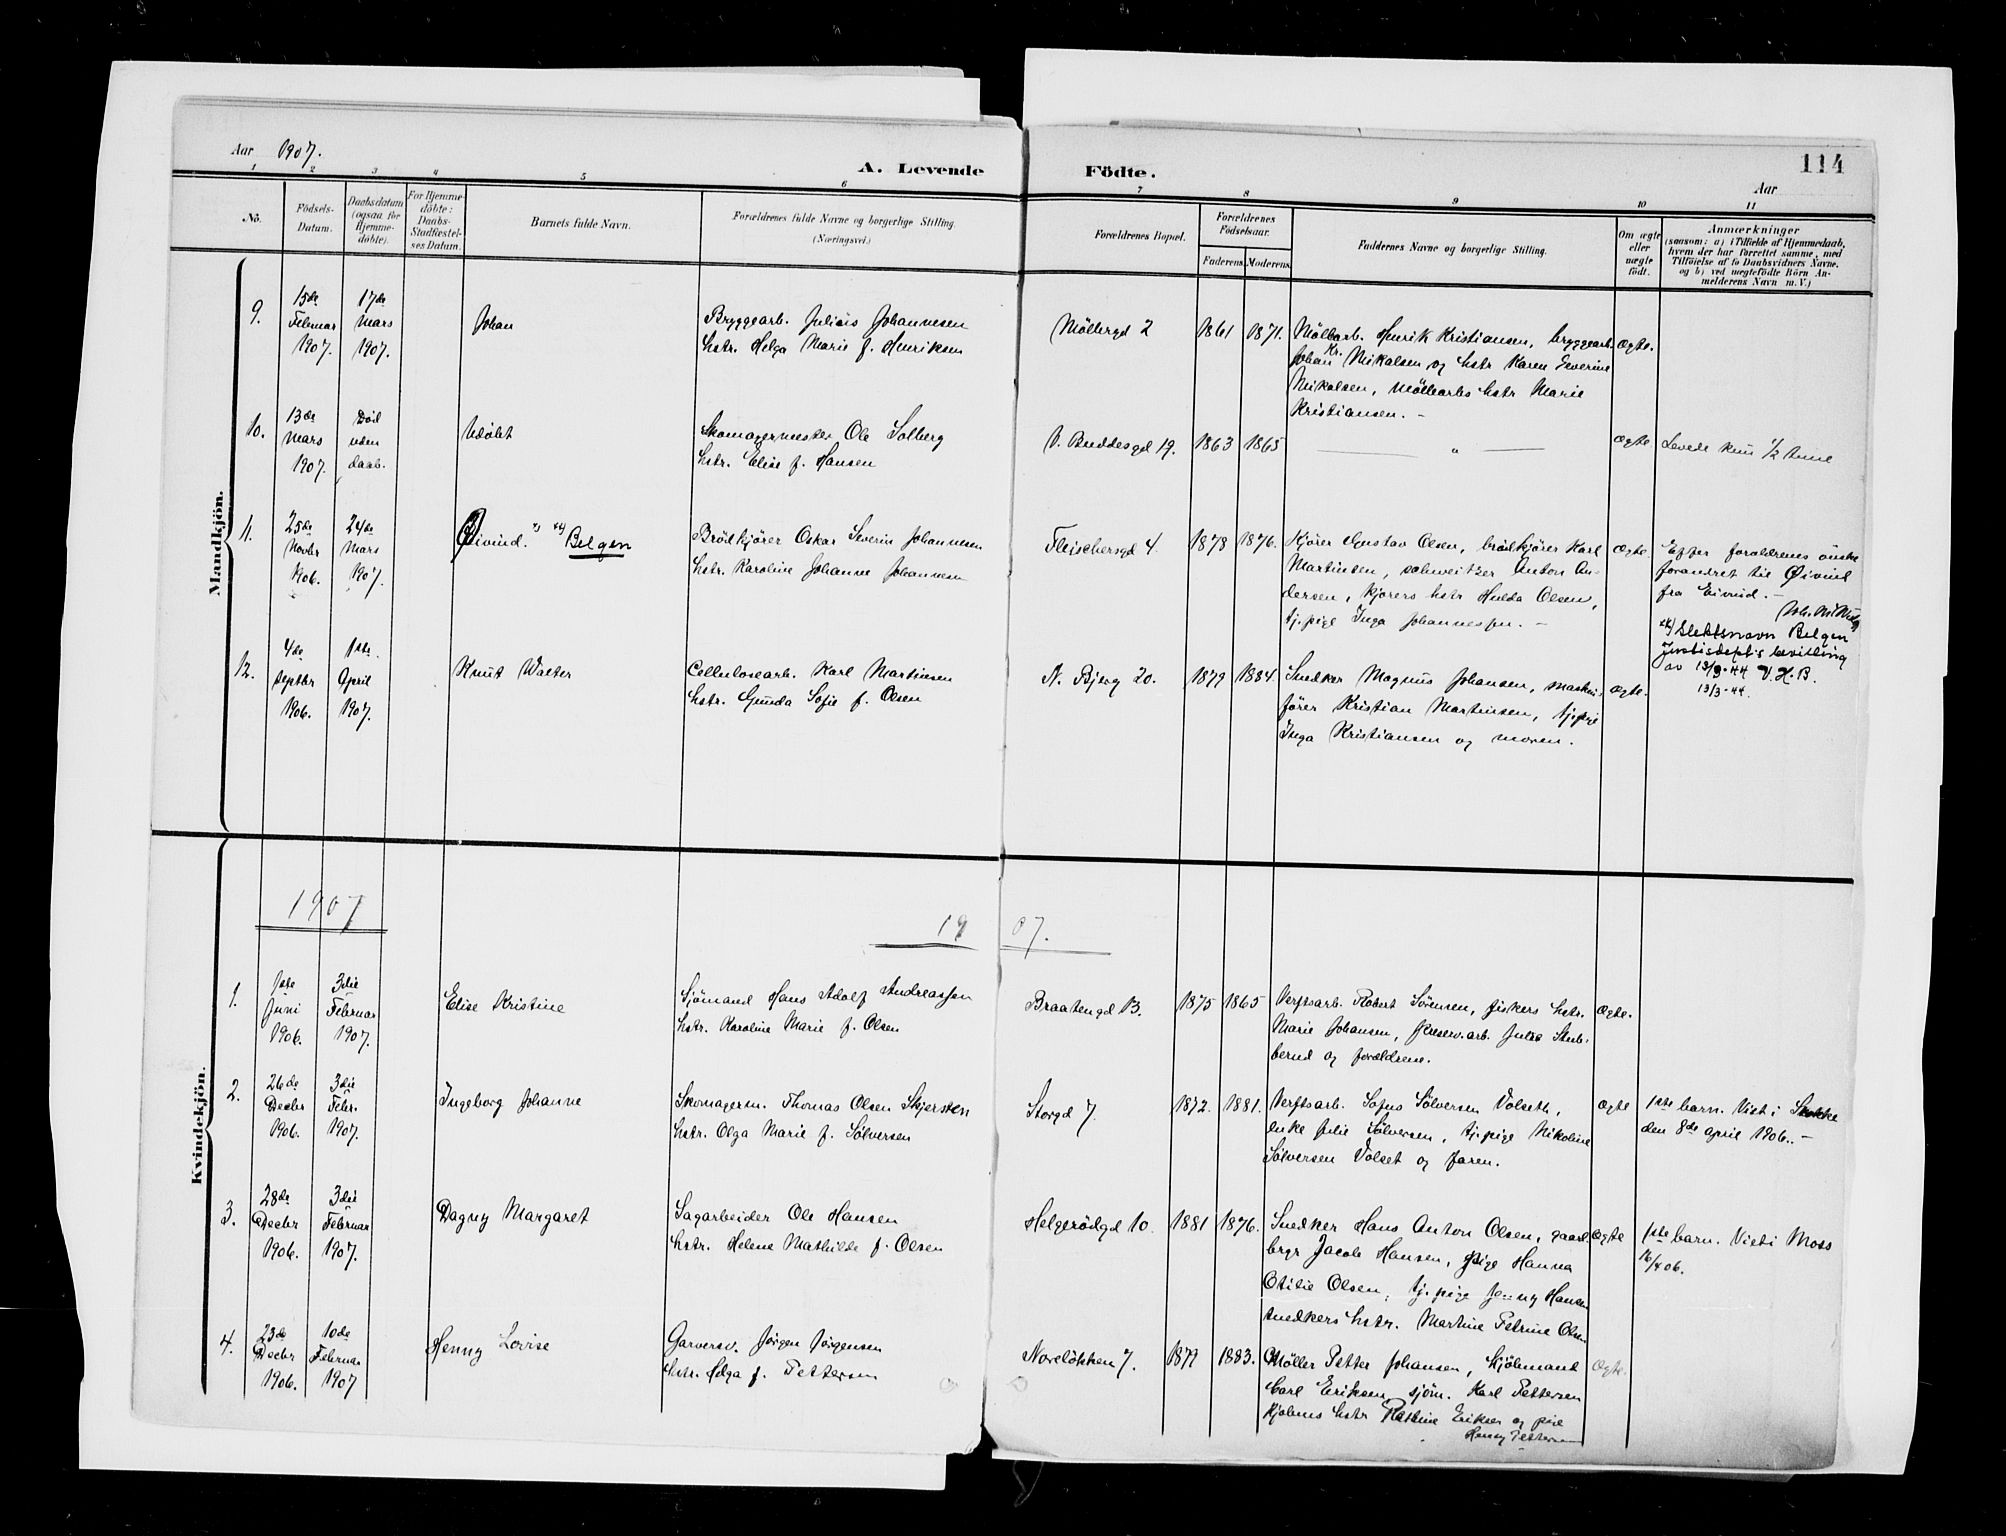 Aar 1907.
A. Levende Födte.
114
Aar
1 2 3 4 5 6 7 8 9 10 11
No.
Födsels-Datum.
Daabsdatum (ogsaa for Hjemme-døbte).
For Hjemme-døbte: Daabs-Stadfæstel-ses Datum.
Barnets fulde Navn.
Forældrenes fulde Navne og borgerlige Stilling.
(Næringsvei.)
Forældrenes Bopæl.
Forældrenes Födselsaar.
Faderens. Moderens.
Faddernes Navne og borgerlige Stilling.
Om ægte eller uægte födt.
Anmærkninger
(saasom: a) i Tilfælde af Hjemmedaab,
hvem der har forrettet samme, med
Tilföielse af to Daabsvidners Navne,
og b) ved uægtefödte Börn An-
melderens Navn m. V.)
Mandkjön.
9.
15de Februar 1907.
17de Mars 1907.
Johan
Bryggearb. Julius Johannesen
hstr. Helga Marie f. Henriksen
Møllergd 2
1861 1871.
Møllearb. Henrik Kristiansen, bryggearb.
Johan Kr. Mikalsen og hstr Karen Severine
Mikalsen, Møllearbs hstr Marie
Kristiansen. -
ægte.
10.
13de Mars 1907.
Död uden daab.
Udøbt
Skomagermester Ole Solberg
hstr. Elise f. Hansen
V. Buddesgd 19.
1863 1865
— " —
ægte
Levede kun 1/2 time
11.
25de Novbr 1906.
24de Mars 1907.
Øivind. *) **) Belgen
Brödkjörer Oskar Severin Johannesen
hstr. Karoline Johanne Johannesen
Fleischersgd 4.
1878 1876.
Kjører Gustav Olsen, brödkjörer Karl
Martinsen, schweitzer Anton An-
dersen, kjørers hstr Hulda Olsen,
tj.pige Inga Johannessen. -
ægte.
Efter forældrenes önske
forandret til Øivind
fra Eivind. -
**) Slektsnavn Belgen
Justisdept's bevilling
av 13/3-44 V.H.B.
13/3-44.
12.
4de Septbr 1906.
1ste April 1907.
Knut Walter
Cellulosearb. Karl Martinsen
hstr. Gunda Sofie f. Olsen
N. Bjerg 20.
1879 1884.
Snedker Magnus Johansen, maskin-
förer Kristian Martinsen, tj.pige
Inga Kristiansen og moren.
ægte.
Kvindekjön.
1907
1907.
1.
1ste Juni 1906.
3die Februar 1907.
Elise Kristine
Sjömand Hans Adolf Andreassen
hstr. Karoline Marie f. Olsen
Braatengd 13.
1875 1865
Verftsarb. Robert Sörensen, fiskers hstr.
Marie Johansen, Preserv.arb. Julie Stub-
berud og forældrene.
ægte.
2.
26de Decbr 1906.
3die Febr. 1907.
Ingeborg Johanne
Skomagerm. Thomas Olsen Skjersten
hstr. Olga Marie f. Sølversen
Storgd 7.
1872. 1881.
Verftsarb. Sofus Sölversen Volseth,
enke Julie Sølversen, tj.pige Nikoline
Sölversen Volset og faren.
ægte
1ste barn. Viet i Stokke
den 8de April 1906. -
3.
28de Decbr 1906.
3die Februar 1907.
Dagny Margaret
Sagarbeider Ole Hansen
hstr. Helene Mathilde f. Olsen
Helgerödgd 10.
1881 1876.
Snedker Hans Anton Olsen, gaard-
brgr Jacob Hansen, pige Hanna
Otilie Olsen, tj.pige Jenny Hansen
snedkers hstr. Martine Petrine Olsen
ægte
1ste barn. Viet i Moss
16/4 06.
4.
23de Decbr 1906.
10de Februar 1907
Henny Lovise
Garversv. Jørgen Jørgensen
hstr. Helga f. Pettersen
Noreløkken 7.
1879 1883.
Møller Petter Johansen, kjöbmand
Carl Eriksen, sjöm. Karl Pettersen
kjøbms hstr Eriksen og pige
Henny Pettersen
ægte.